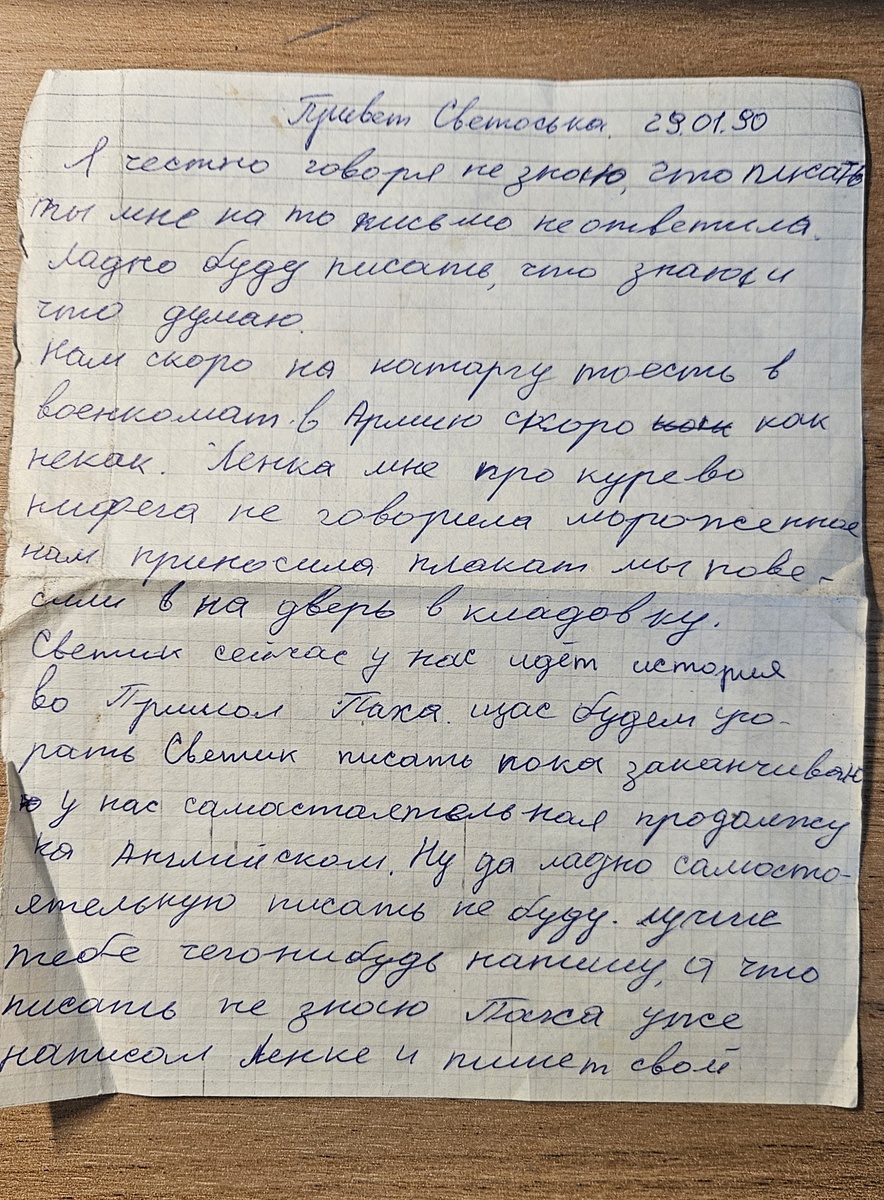 Привет Светоська. 29.01.90
Я честно говоря не знаю, что писать
ты мне на то письмо не ответила.
Ладно буду писать, что знаю и
что думаю.
Нам скоро на каторгу тоесть в
военкомат. в Армию скоро как
некак. Ленка мне про курево
нифега не говорила мороженное
нам приносила плакат мы пове-
сили в на дверь в кладовку.
Светик сейчас у нас идёт история
во Пришол Паха. щас будем уго-
рать Светик писать пока заканчиваю
у нас самастаятельная продолжу
на Английском. Ну да ладно самосто-
ятельную писать не буду. лучше
тебе чегонибудь напишу, а что
писать не знаю Паха уже
написал Ленке и пишет свой